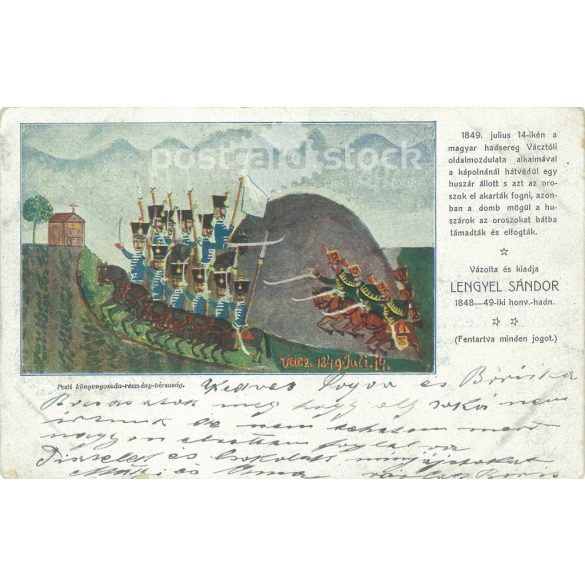 postcard.stock
1849. julius 14-ikén a
magyar hadsereg Vácztóli
oldalmozdulata alkalmával
a kápolnánál hátvédül egy
huszár állott s azt az oro-
szok el akarták fogni, azon-
ban a domb mögül a hu-
szárok az oroszokat hátba
támadták és elfogták.
Vázolta és kiadja
LENGYEL SÁNDOR
1848—49-iki honv.-hadn.
(Fentartva minden jogot.)
Vácz. 1849 Juli. 14.
Pesti könyvnyomda-részvény-társaság.
Kedves és Boriska
meg hogy oly soká nem
írtunk de nem tehetem mert
nagyon el voltam foglalva
és
és Boris